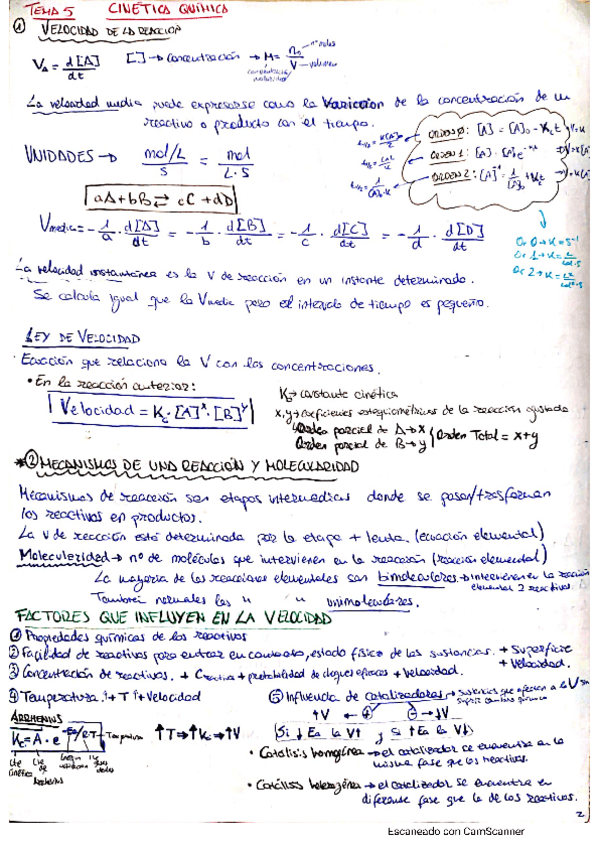 TEMA 5 CINÉTICA QUÍMICA
① VELOCIDAD DE LA REACCIÓN
V_A = d[A]/dt [ ] → concentración → M = n/V → nº moles → volumen
La velocidad media puede expresarse como la variación de la concentración de un
reactivo o producto con el tiempo.
ORDEN 0: [A] = [A]₀ - K_c t
ORDEN 1: [A] = [A]₀ e
ORDEN 2: [A]⁻¹ = 1/[A]₀ + K_c t
UNIDADES → mol/L / s = mol / L·S
aA + bB ⇄ cC + dD
V media = - 1/a · d[A]/dt = - 1/b · d[B]/dt = - 1/c · d[C]/dt = - 1/d · d[D]/dt
Or 0 → K = s⁻¹
Or 1 → K =
Or 2 → K =
La velocidad instantánea es la V de reacción en un instante determinado.
Se calcula igual que la Vmedia pero el intervalo de tiempo es pequeño.
LEY DE VELOCIDAD
Ecuación que relaciona la V con las concentraciones.
• En la reacción anterior:
Velocidad = K_c · [A]ˣ · [B]ʸ
K_c → constante cinética
x, y → coeficientes estequiométricos de la reacción ajustada
Orden parcial de A → x
Orden parcial de B → y
Orden Total = x + y
* ② MECANISMOS DE UNA REACCIÓN Y MOLECULARIDAD
Mecanismos de reacción son etapas intermedias donde se pasan/trasforman
los reactivos en productos.
La V de reacción está determinada por la etapa + lenta. (ecuación elemental)
Molecularidad → nº de moléculas que intervienen en la reacción (reacción elemental)
La mayoría de las reacciones elementales son bimoleculares. → intervienen en la reacción
elemental 2 reactivos.
También normales las " " unimoleculares.
FACTORES QUE INFLUYEN EN LA VELOCIDAD
① Propiedades químicas de los reactivos
② Facilidad de reactivos para entrar en contacto, estado físico de las sustancias. + Superficie
+ Velocidad.
③ Concentración de reactivos. + Creactivo + probabilidad de choques eficaces + Velocidad.
④ Temperatura ↑ + T ↑ + Velocidad
⑤ Influencia de catalizadores → sustancias que afectan a la V sin
sufrir cambio químico
↑V ← ⊕ ⊖ → ↓V
(Si ↓ Ea la V↑ y si ↑ Ea la V↓)
ARRHENIUS
K_c = A · e -Ea/RT → Temperatura
↑T ⇒ ↑K_c ⇒ ↑V
Cte cinética
Cte de Arrhenius
• Catálisis homogénea → el catalizador se encuentra en la
misma fase que los reactivos.
• Catálisis heterogénea → el catalizador se encuentra en
diferente fase que la de los reactivos.
2
Escaneado con CamScanner